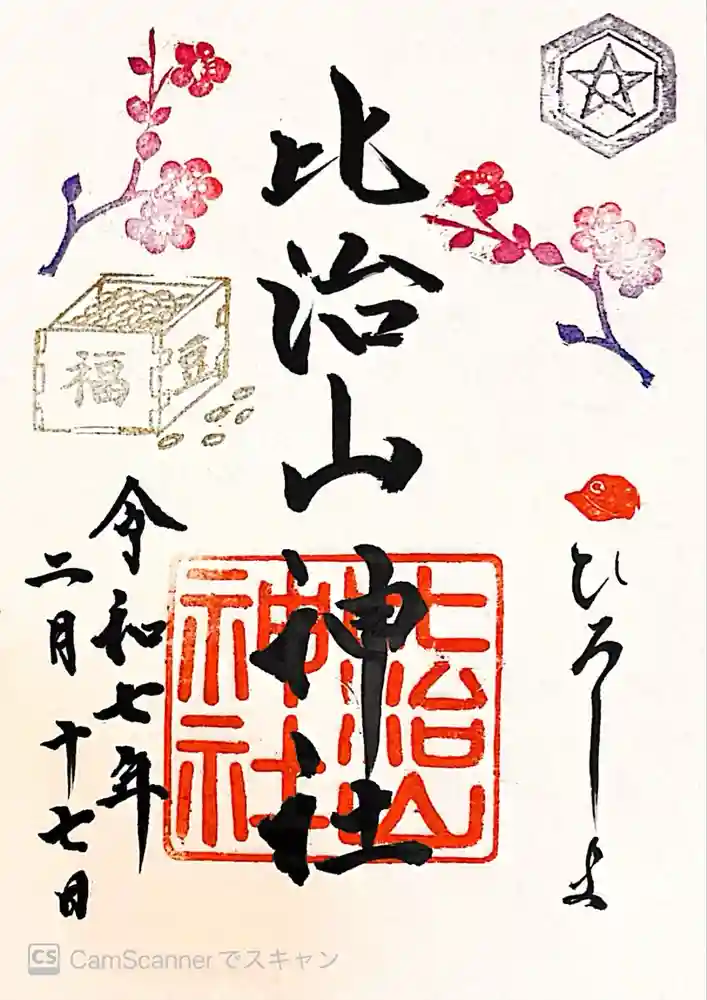 C
ひろしま
比治山神社
比治山
神社
福
豆
令和七年
二月十七日
CS CamScannerでスキャン